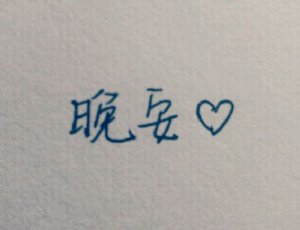 晚安♡